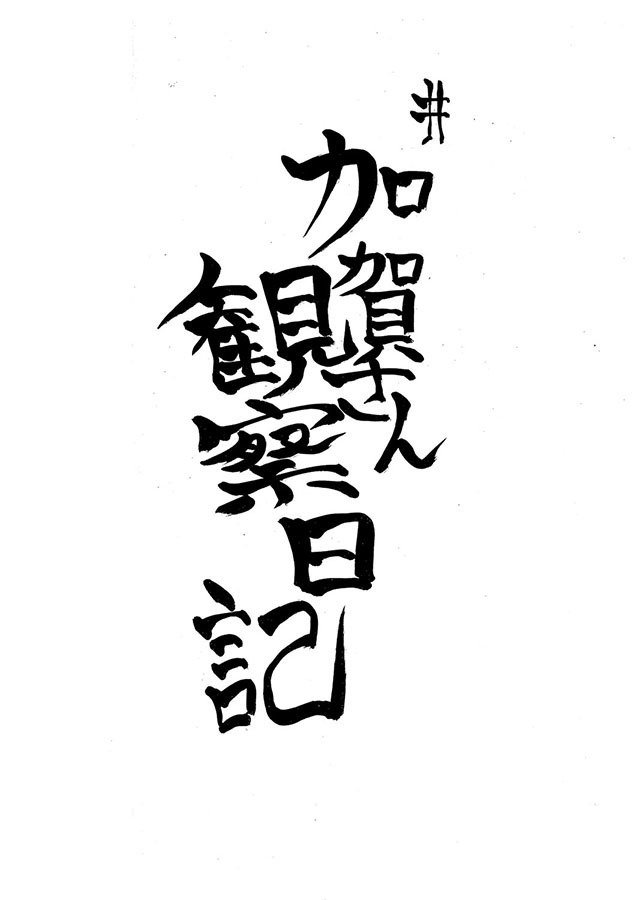 #
加賀さん
観察
日記